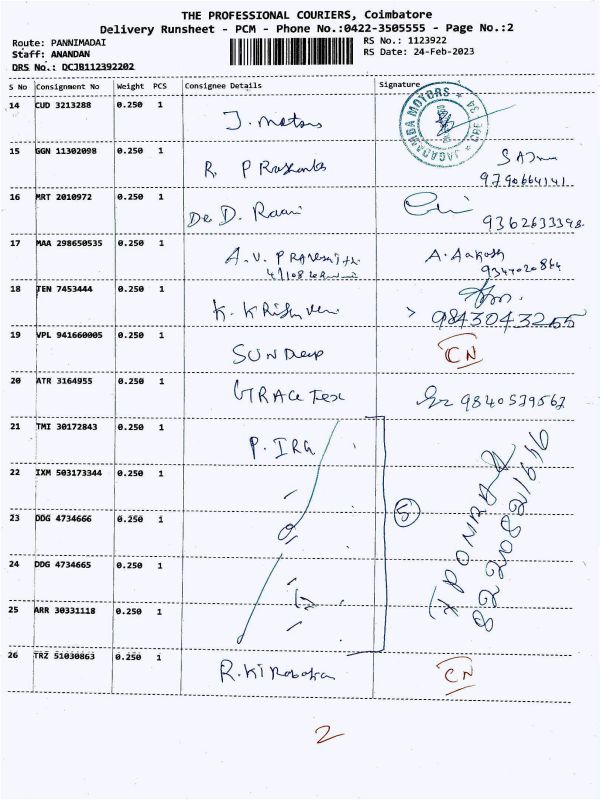 THE PROFESSIONAL COURIERS, Coimbatore
Delivery Runsheet - PCM - Phone No.:0422-3505555 - Page No.:2
Route: PANNIMADAI
Staff: ANANDAN
DRS No.: DCJB112392202
RS No.: 1123922
RS Date: 24-Feb-2023
S No Consignment No Weight PCS Consignee Details Signature
JAGADAMBA MOTORS
CBE
14 CUD 3213288 0.250 1 J.
15 GGN 11302098 0.250 1 R.
9790664141
16 MRT 2010972 0.250 1 D.
9362633398
17 MAA 298650535 0.250 1 A.V. A. Aakash
9344020864
18 TEN 7453444 0.250 1 K.
9843043255
19 VPL 941660005 0.250 1 SUNDeep CN
20 ATR 3164955 0.250 1 GRACe Tex 9840579567
21 TMI 30172843 0.250 1 P.
22 IXM 503173344 0.250 1
23 DDG 4734666 0.250 1
5
24 DDG 4734665 0.250 1
25 ARR 30331118 0.250 1
26 TRZ 51030863 0.250 1 R. CN
2